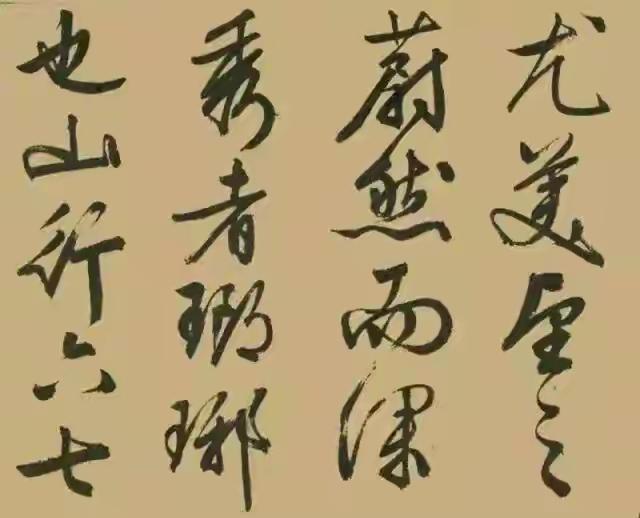 尤美望之
蔚然而深
秀者瑯琊
也山行六七